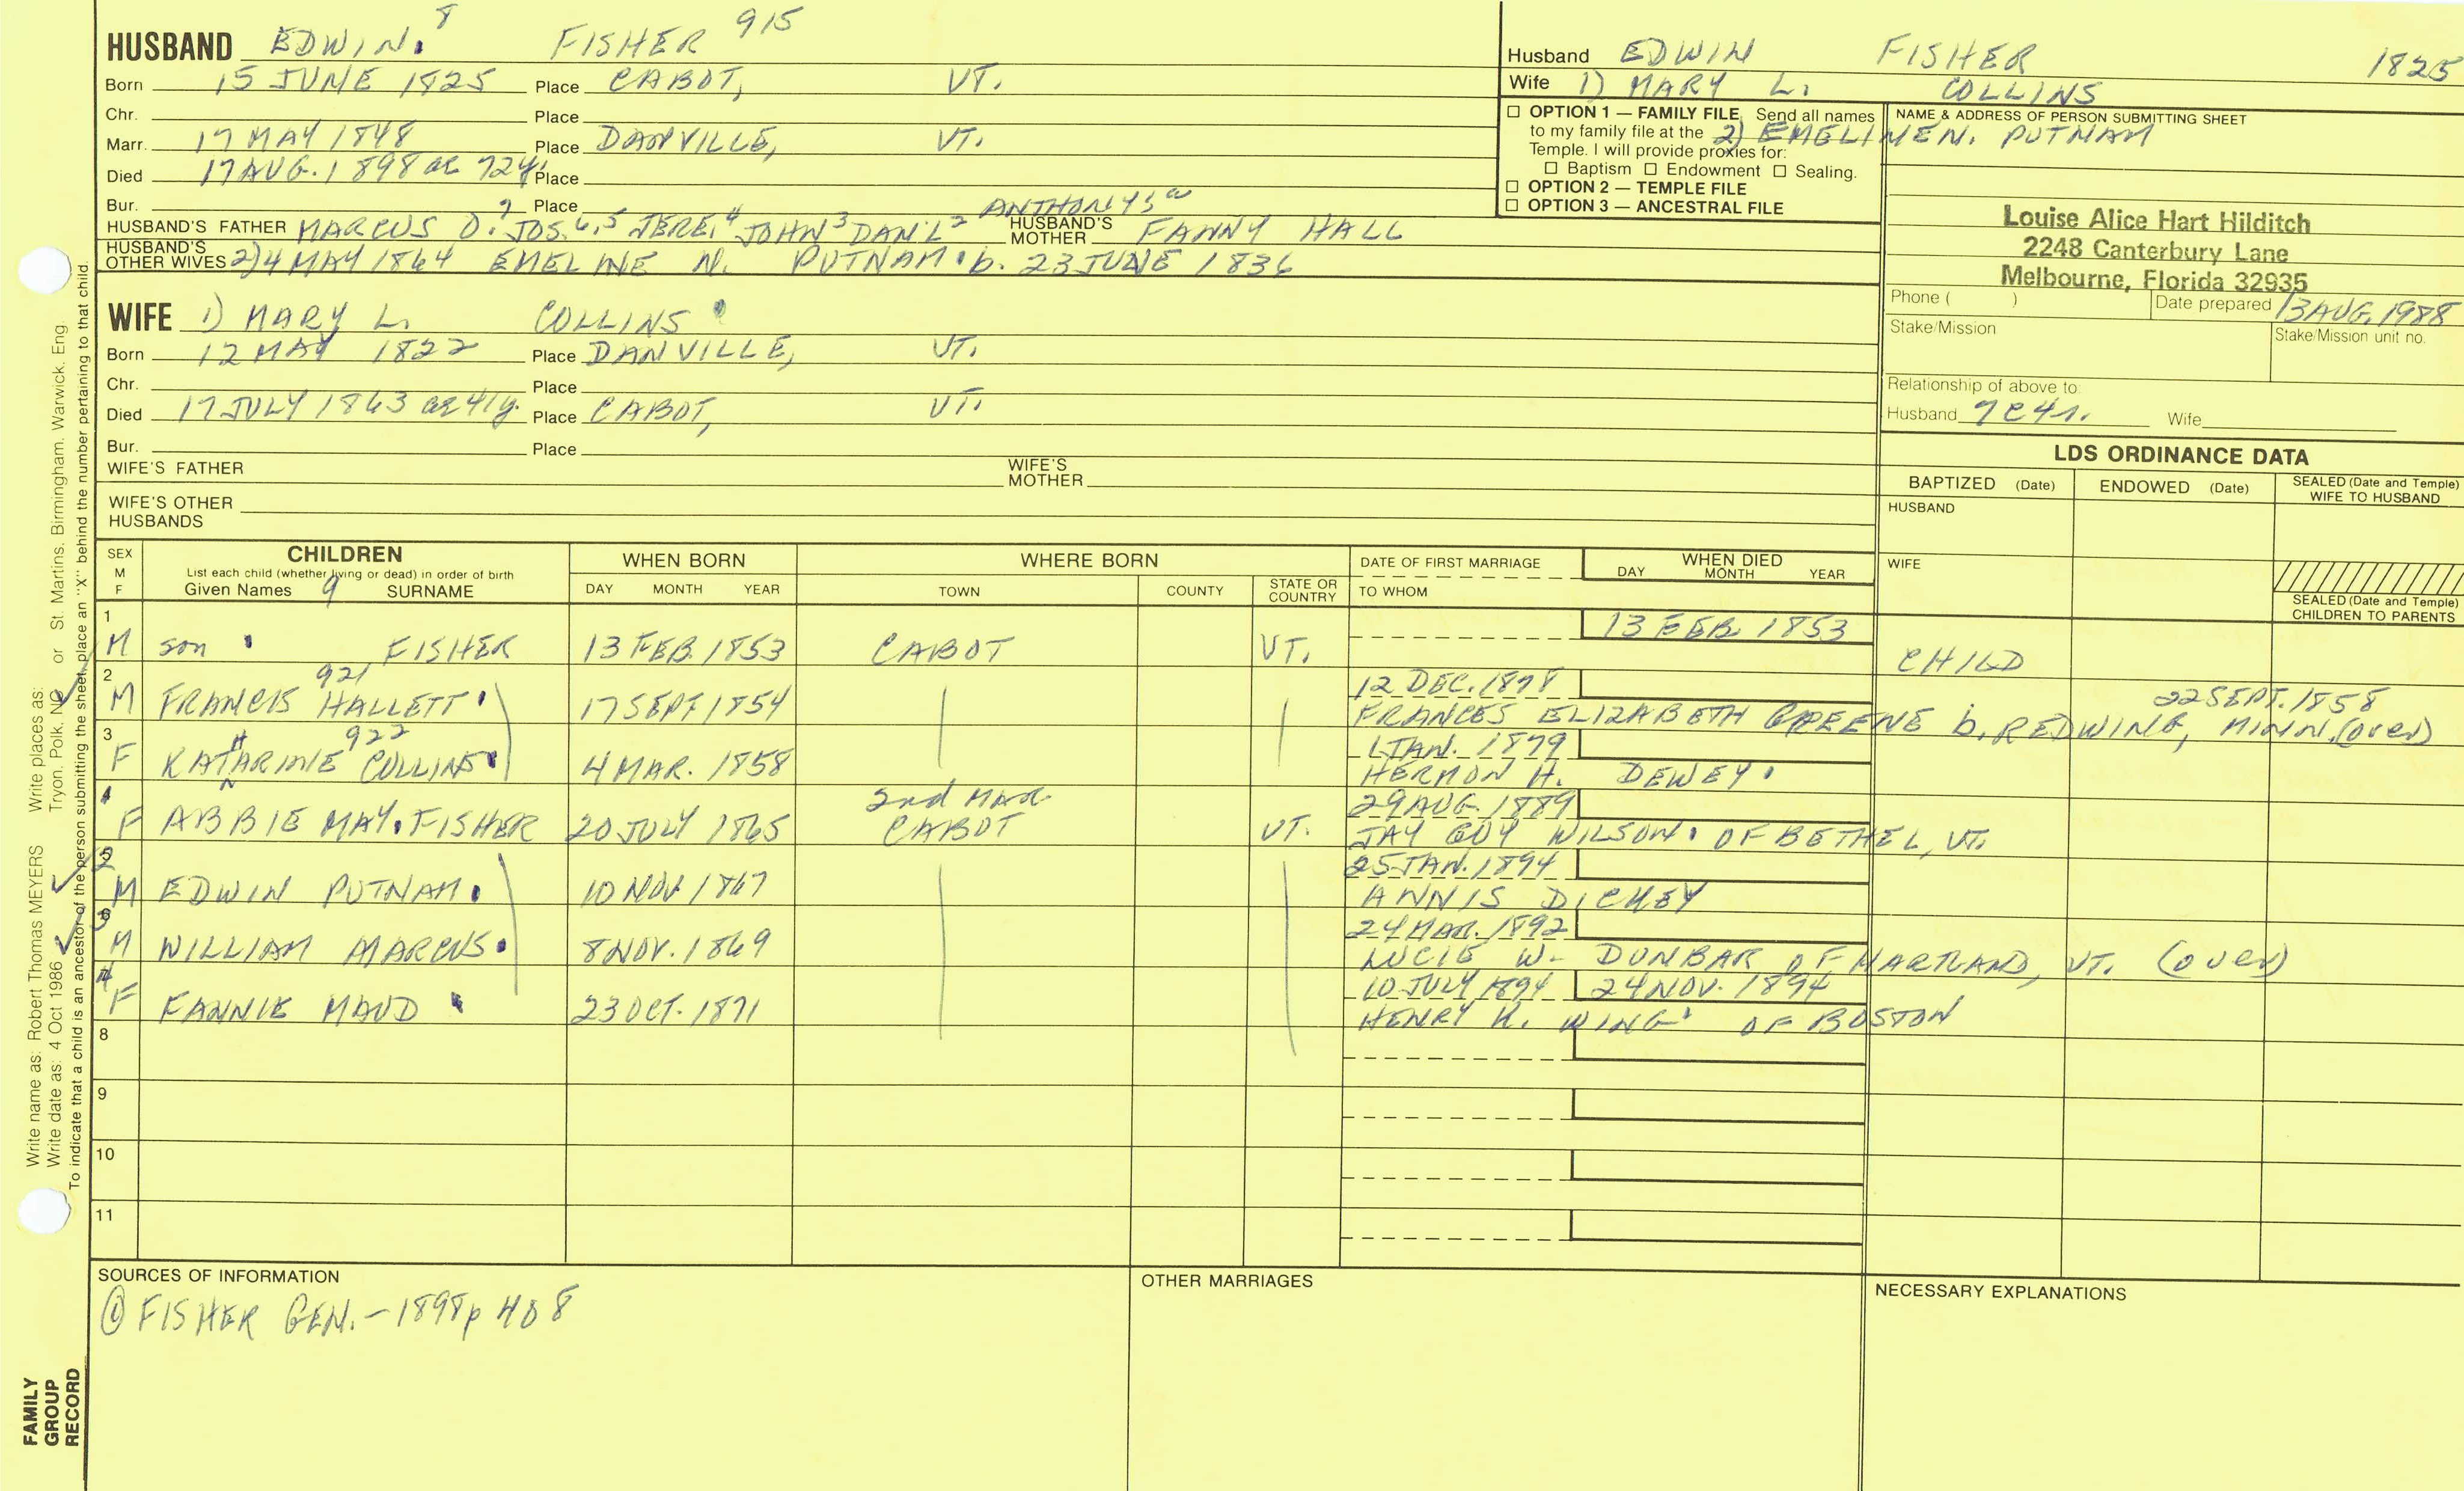 HUSBAND EDWIN.8 FISHER 915
Born 15 JUNE 1825 Place CABOT, VT.
Chr. Place
Marr. 17 MAY 1848 Place DANVILLE, VT.
Died 17 AUG. 1898 ae 72y Place
Bur. Place
HUSBAND'S FATHER MARCUS O.7 JOS.6,5 JERE.4 JOHN3 DAN'L2 ANTHONY HUSBAND'S MOTHER FANNY HALL
HUSBAND'S OTHER WIVES 2) 4 MAY 1864 EMELINE N. PUTNAM. b. 23 JUNE 1836
WIFE 1) MARY L. COLLINS
Born 12 MAY 1822 Place DANVILLE, VT.
Chr. Place
Died 17 JULY 1863 ae 41y. Place CABOT, VT.
Bur. Place
WIFE'S FATHER WIFE'S MOTHER
WIFE'S OTHER HUSBANDS
Husband EDWIN FISHER 1825
Wife 1) MARY L. COLLINS
2) EMELINE N. PUTNAM
☐ OPTION 1 — FAMILY FILE Send all names
to my family file at the
Temple. I will provide proxies for:
☐ Baptism ☐ Endowment ☐ Sealing.
☐ OPTION 2 — TEMPLE FILE
☐ OPTION 3 — ANCESTRAL FILE
NAME & ADDRESS OF PERSON SUBMITTING SHEET
Louise Alice Hart Hilditch
2248 Canterbury Lane
Melbourne, Florida 32935
Phone ( ) Date prepared 13 AUG. 1988
Stake/Mission Stake/Mission unit no.
Relationship of above to:
Husband Wife
LDS ORDINANCE DATA
BAPTIZED (Date) ENDOWED (Date) SEALED (Date and Temple) WIFE TO HUSBAND
HUSBAND
WIFE
SEALED (Date and Temple) CHILDREN TO PARENTS
SEX M F CHILDREN WHEN BORN WHERE BORN DATE OF FIRST MARRIAGE WHEN DIED
List each child (whether living or dead) in order of birth DAY MONTH YEAR
Given Names 9 SURNAME DAY MONTH YEAR TOWN COUNTY STATE OR COUNTRY TO WHOM
1 M son FISHER 13 FEB. 1853 CABOT VT. 13 FEB. 1853 CHILD
921
2 M FRANCIS HALLETT 17 SEPT 1854 12 DEC. 1878 22 SEPT. 1858
FRANCES ELIZABETH GREENE b. REDWING, MINN. (over)
922
3 F KATHARINE COLLINS 4 MAR. 1858 1 JAN. 1879
HERMON H. DEWEY.
2nd Mar
4 F ABBIE MAY. FISHER 20 JULY 1865 CABOT VT. 29 AUG. 1889
JAY GUY WILSON. OF BETHEL, VT.
5 M EDWIN PUTNAM. 10 NOV 1867 25 JAN. 1894
ANNIS DICKEY
6 M WILLIAM MARCUS. 8 NOV. 1869 24 MAR. 1892
LUCIE W. DUNBAR OF HARTLAND, VT. (over)
F FANNIE MAUD 23 OCT. 1871 10 JULY 1894 24 NOV. 1894
HENRY K. WING OF BOSTON
8
9
10
11
SOURCES OF INFORMATION
① FISHER GEN. - 1898 p 408
OTHER MARRIAGES
NECESSARY EXPLANATIONS
Write name as: Robert Thomas MEYERS Write places as: Tryon, Polk, NC or St. Martins, Birmingham, Warwick, Eng.
Write date as: 4 Oct 1986
To indicate that a child is an ancestor of the person submitting the sheet, place an "X" behind the number pertaining to that child.
FAMILY
GROUP
RECORD